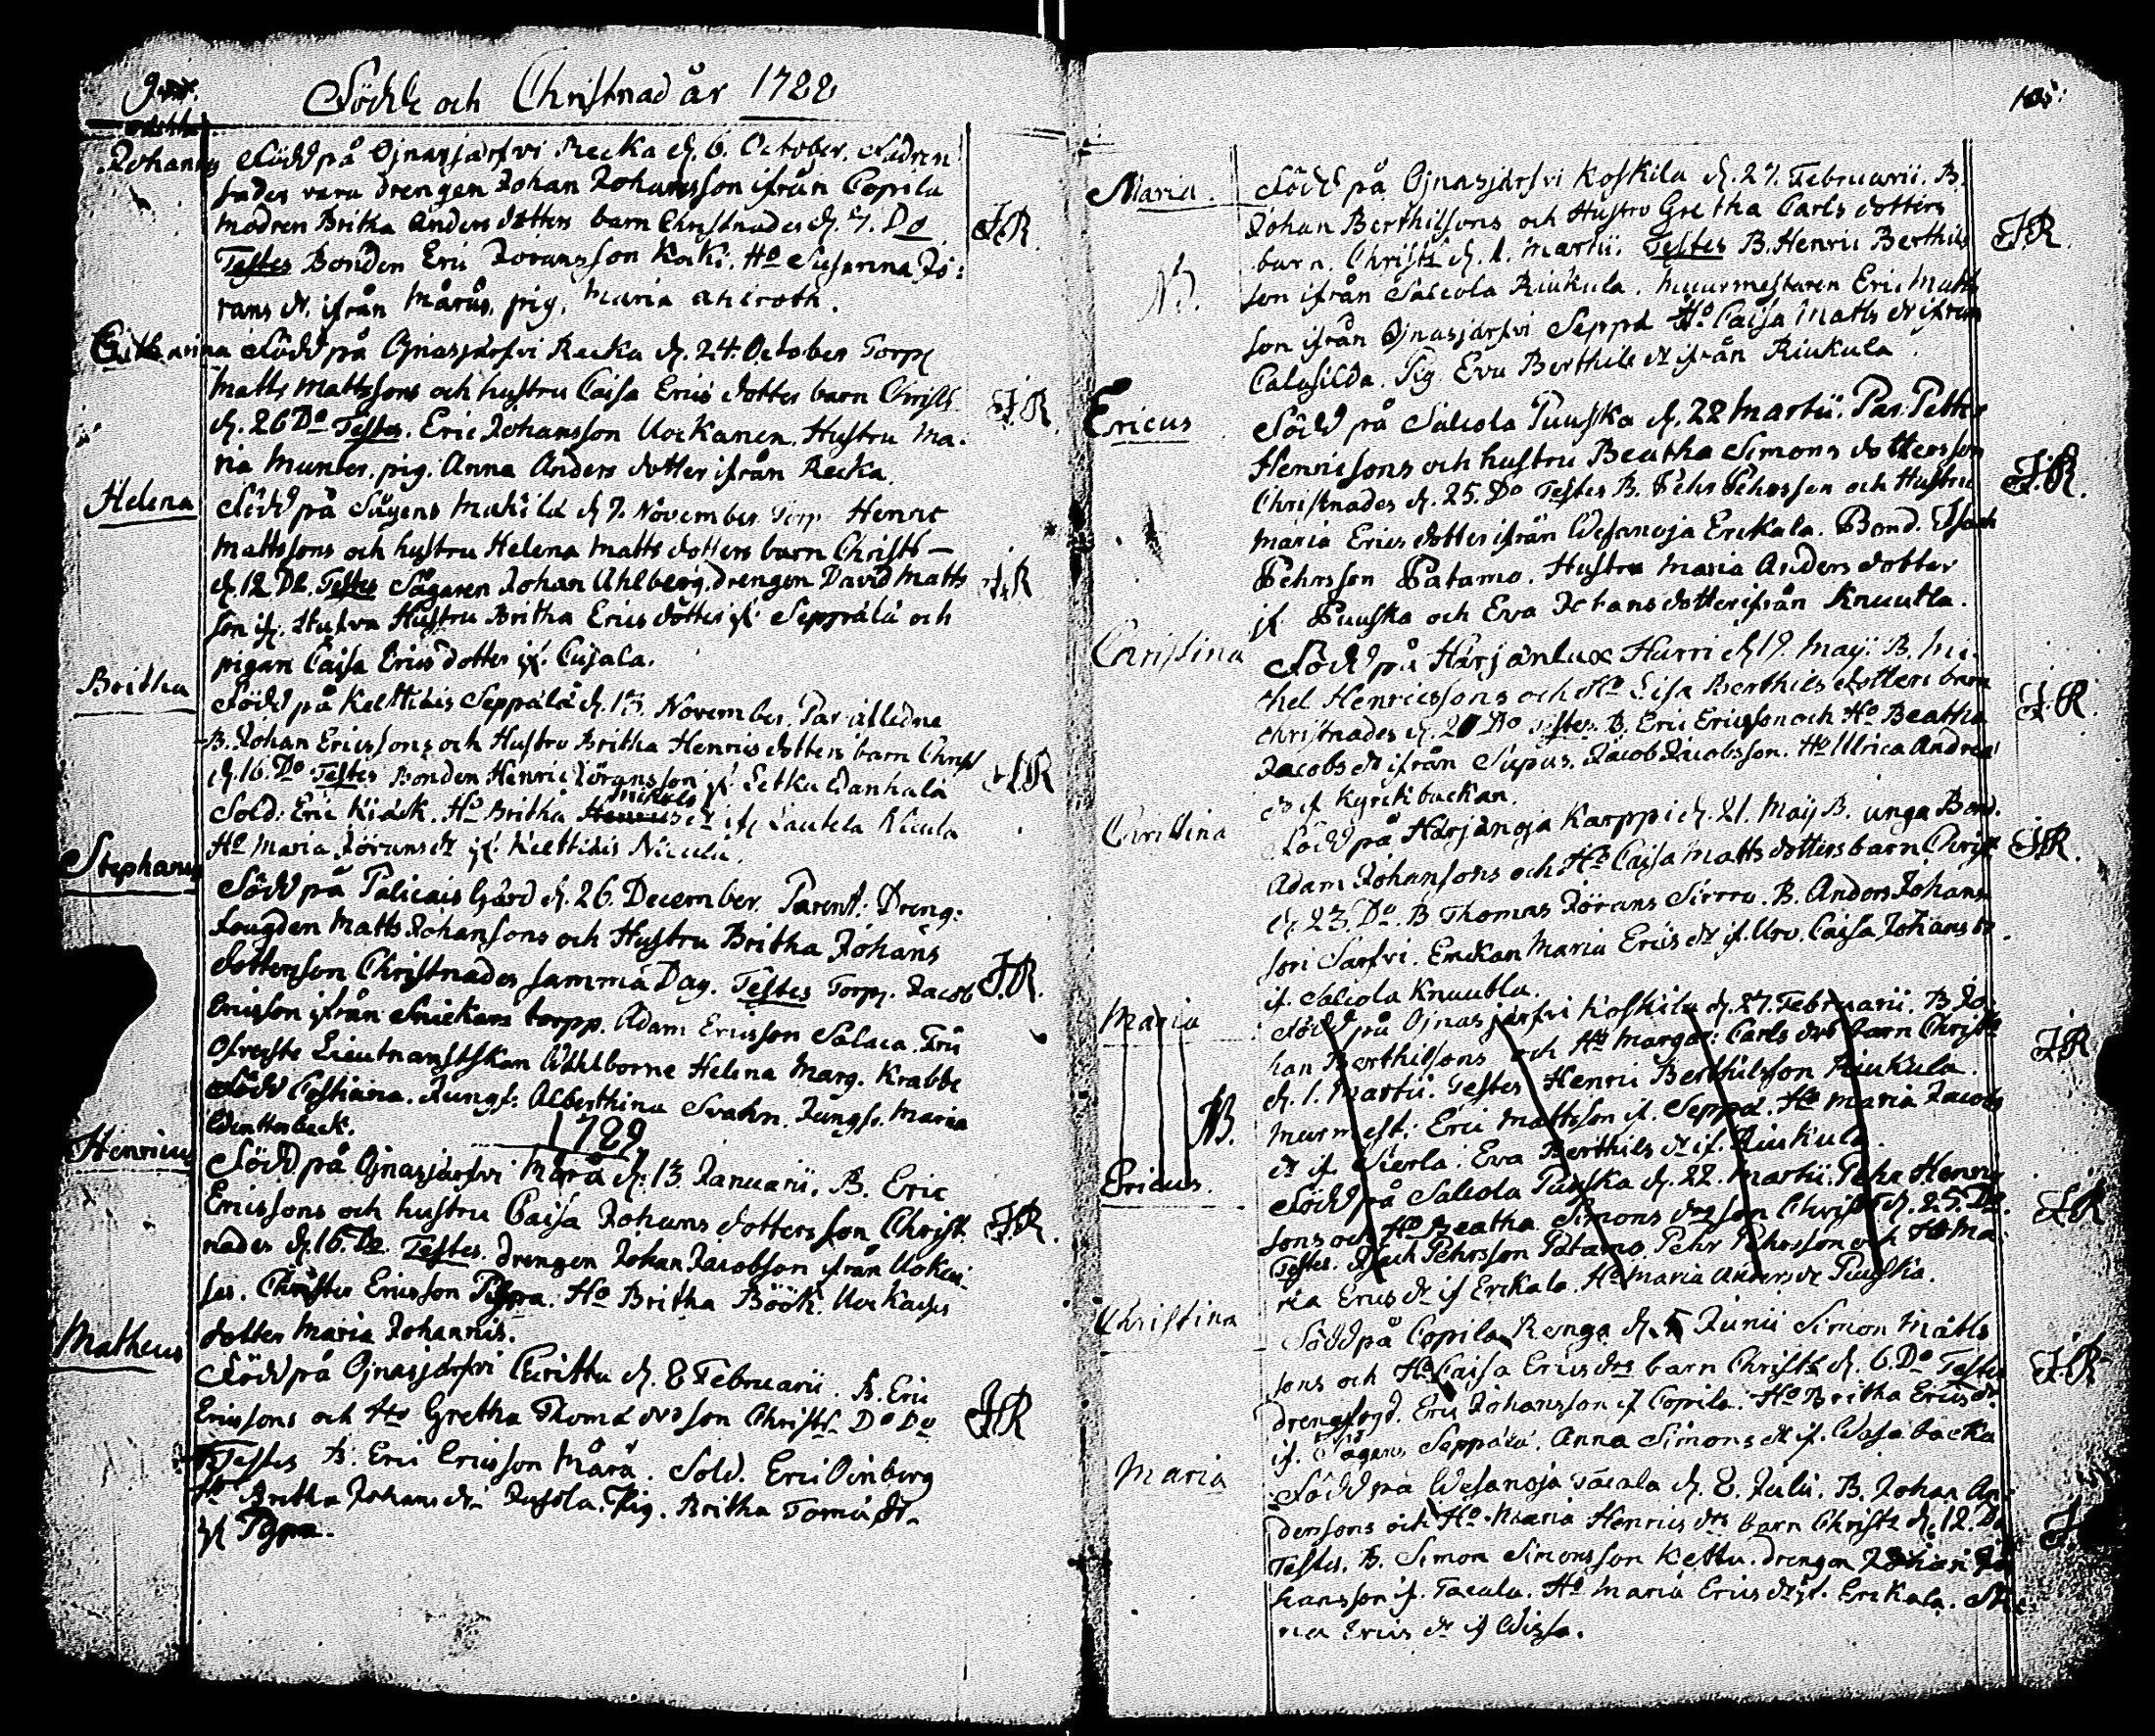 Födde och Christnad år 1788
Johannes Född på Ojnasjärfvi Recka d. 6. October. Fadren
sades vara drengen Johan Johansson ifrån Copila
modren Britha Anders dotters barn Christnades d. 7. Do
Testes Bonden Eric Joransson Kocki. Ho Susanna Jö:
rans dr. ifrån Mårås, pig. Maria Ahlroth.
J.R.
Catharina Född på Ojnasjärfvi Recka d. 24. October Torp
Matts Mattssons och hustru Caisa Erics dotter barn Christs
d. 26 Do Testes. Eric Johansson Uockanen. Hustru Ma-
ria Munter. pig. Anna Anders dotter ifrån Recka.
J.R.
Helena Född på Sågens Mackilä d. 7. November Torp Henric
Mattssons och hustru Helena Matts dotters barn Christs
d. 12 Do. Testes Sågaren Johan Ahlberg. drengen David Matts
son if. Hustru Britha Erics dotter if. Seppälä och
pigan Caisa Erics dotter if. Cusala.
J.R.
Britha Född på Kelttiais Seppälä d. 13. November. Par. afledne
B. Johan Ericssons och Hustru Britha Henrics dotters barn Christ
d. 16. Do Testes Bonden Henric Jöransson if Letku Danhala
Sold: Eric Kiäck. Ho Britha Michels dr if Lautela Nicula
Ho Maria Jörans dr if. Kelttiais Nicula.
J.R.
Stephanus Född på Palicais Gård d. 26. December. Parent: Dreng:
fougden Matts Johansons och Hustru Britha Johans
dotterson Christnades samma Dag. Testes Torp. Jacob
Ericsson ifrån Snickars torpp. Adam Ericsson Salaca. Fru
Ofverste Lieutnantskan Wahlborne Helena Marg. Krabbe
Född Jungf: Alberthina Svahn. Jungf. Maria
J.R.
1789
Henricus Född på Ojnasjärfvi Mårå d. 13 Januarii. B. Eric
Ericssons och hustru Caisa Johans dotters son Christ
nades d. 16. Do. Testes. drengen Johan Jacobson ifrån Uokai
ses. Christer Ericsson Pyppa. Ho Britha Böök. Uockaises
dotter Maria Johannis.
J.R.
Matheus Född på Ojnasjärfvi d. 8 Februarii. B. Eric
Ericssons och Ho Gretha Thomæ drs son Christs Do Do
Testes B. Eric Ericsson Mårå. Sold. Eric Oinberg
Ho Britha Johans dr Jussola. Pig. Britha Tomæ dr.
J.R.
105:
Maria Född på Ojnasjärfvi Koskila d. 27. Februarii. B.
Johan Berthilsons och Hustru Gretha Carls dotters
barn. Christs d. 1. Martii. Testes B. Henric Berthils
son ifrån Saleola Riukula. Muurmestaren Eric Matts
son ifrån Ojnasjärfvi Seppä Ho Caisa Matts dr ifrån
Calusilda. Pig Eva Berthils dr ifrån Riukula.
J.R.
Ericus Född på Saleola Puuska d. 22 Martii. Par: Petter
Henricsons och hustru Beatha Simons dottersson
Christnades d. 25. Do Testes B. Pehr Pehrsson och Hustru
Maria Erics dotter ifrån Wesanoja Erckala. Bond. Isach
Pehrsson Patamo. Hustru Maria Anders dotter
if Puuska och Eva Johans dotter ifrån Knuutla.
J.R.
Christina Född på Harjanlux Hurri d. 19 Maji B. Mi-
chel Henricssons och Ho Lisa Berthils dotters barn
christnades d. 20 Do Testes. B. Eric Ericsson och Ho Beatha
Jacobs dr ifrån Supus. Jacob Jacobsson. Ho Ulrica Andreæ
dr if Kyrckbackan.
J.R.
Christina Född på Harjanoja Karppi d. 21. Maij B. unga Bond.
Adam Johansons och Ho Caisa Matts dotters barn Christ
d. 23. Do. B Thomas Jörans Sirro. B. Anders Johans
son Sarfvi. Enckan Maria Erics dr if. Uro. Caisa Johans dr
if. Saleola Knuutla.
J.R.
Maria Född på Ojnasjärfvi Koskila d. 27. Februarii. B Jo-
han Berthilsons och Ho Margar: Carls drs barn Christs
d. 1. Martii. Testes Henric Berthilsson Riukula.
Murmest: Eric Mattsson if. Seppä. Ho Maria Jacobs
dr if. Sierla. Eva Berthils dr if. Riukula.
NB.
J.R.
Ericus. Född på Saleola Puuska d. 22. Martii. Pehr Henric
sons och Ho Beatha Simons drs son Christs d. 25. Do.
Testes. Isach Pehrsson Patamo. Pehr Pehrsson och Ho Ma-
ria Erics dr if Erckala. Ho Maria Anders dr Puuska.
J.R.
Christina Född på Copila Renga d. 5 Junii Simon Matts
sons och Ho Caisa Erics drs barn Christs d. 6. Do Testes
drengfogd. Eric Johansson if Copila. Ho Britha Erics dr.
if. Sågens Seppälä. Anna Simons dr if. Wasabacka
J.R.
Maria Född på Wesanoja Tacala d. 8. Julii. B. Johan An-
derssons och Ho Maria Henrics drs barn Christs d. 12. Do
Testes. B. Simon Simonsson Kettu. drengen Johan Jo
hansson if. Tacala. Ho Maria Erics dr if. Erckala.
na Erics dr if Wissa.